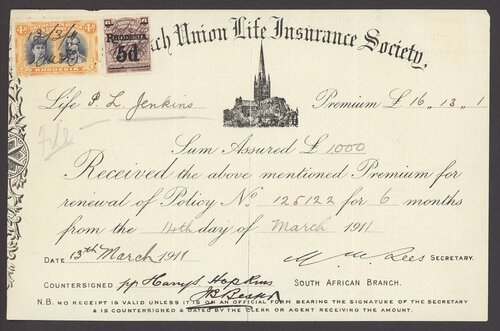 4d 4d
RHODESIA
RHODESIA
5d
ch Union Life Insurance Society,
Life P. L. Jenkins Premium £ 16 „ 13 „ 1
Sum Assured £ 1,000
Received the above mentioned Premium for
renewal of Policy No. 125122 for 6 months
from the 14th day of March 1911
DATE 13th March 1911 SECRETARY.
COUNTERSIGNED pp Harry S Hopkins SOUTH AFRICAN BRANCH.
N.B. NO RECEIPT IS VALID UNLESS IT IS ON AN OFFICIAL FORM BEARING THE SIGNATURE OF THE SECRETARY
& IS COUNTERSIGNED & DATED BY THE CLERK OR AGENT RECEIVING THE AMOUNT.